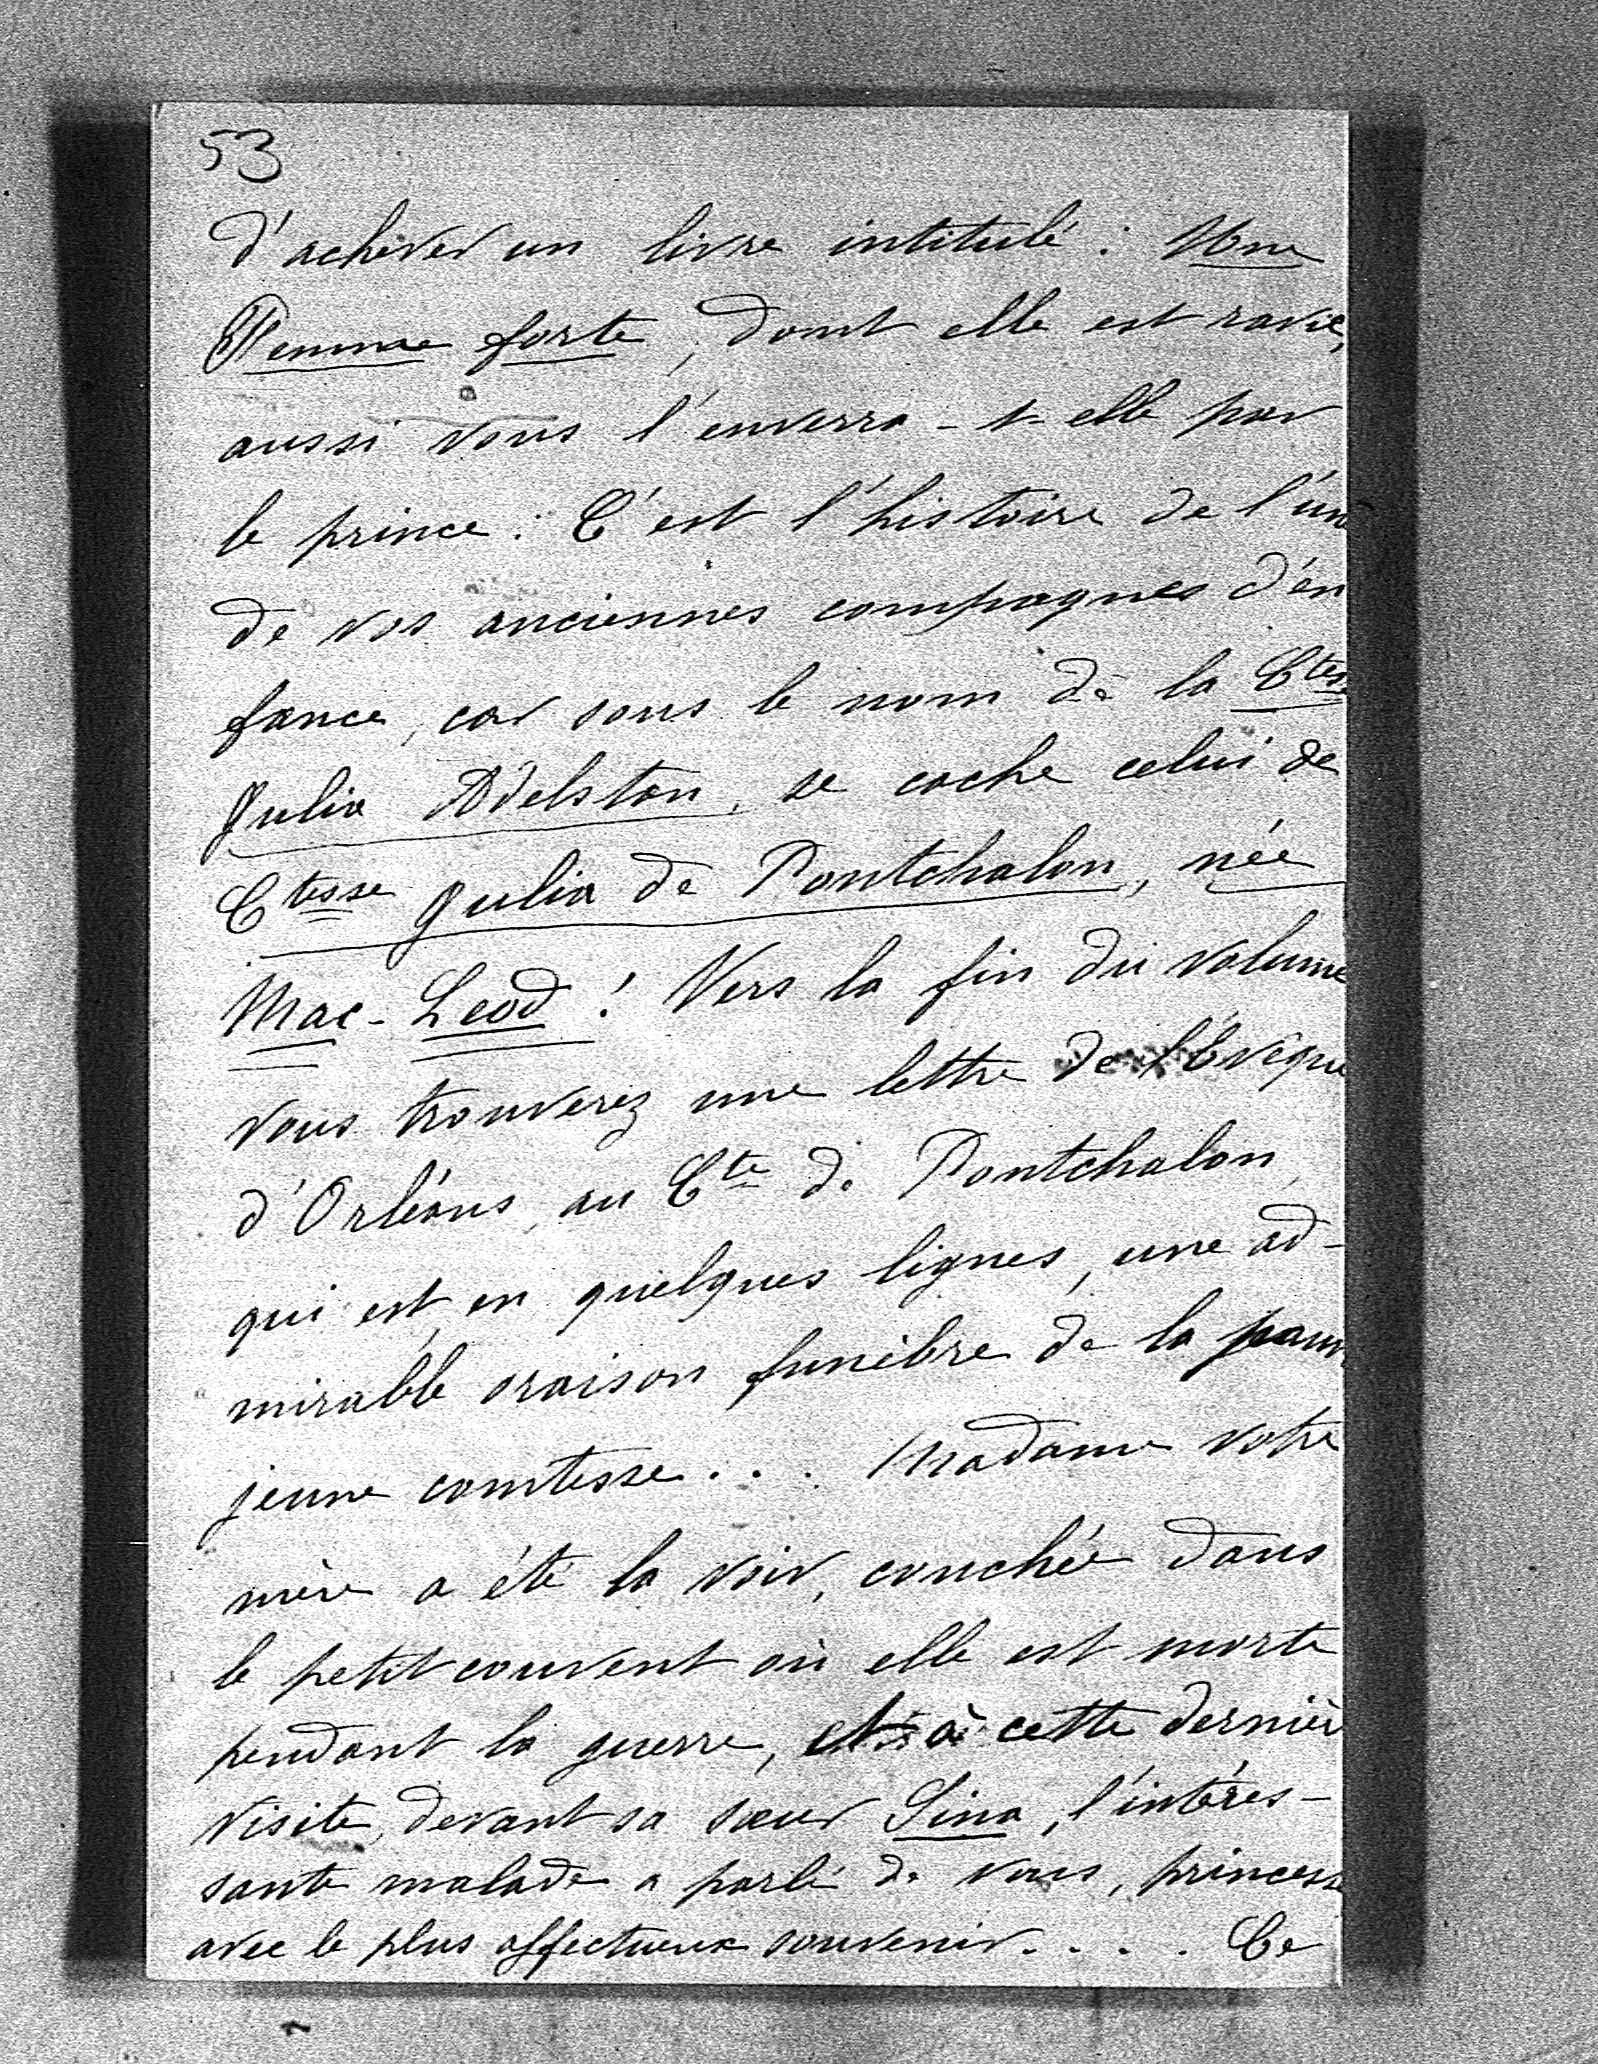 53
d'achever un livre intitulé : Une
Femme forte, dont elle est ravie,
aussi vous l'enverra-t-elle par
le prince : C'est l'histoire de l'un
de vos anciennes compagnes d'en
fance, car sous le nom de la Ctess
Julia Adelstan, se cache celui de
Ctesse Julia de Pontchalon, née
Mac-Leod ! Vers la fin du volume
vous trouverez une lettre de l'Evêque
d'Orléans, au Cte de Pontchalon,
qui est, en quelques lignes, une ad-
mirable oraison funèbre de la pauv
jeune comtesse . . . Madame votre
mère a été la voir, couchée dans
le petit couvent où elle est morte
pendant la guerre, à cette dernièr
visite, devant sa sœur Lina, l'intéres-
sante malade a parlé de vous, princesse
avec le plus affectueux souvenir . . . . Ce